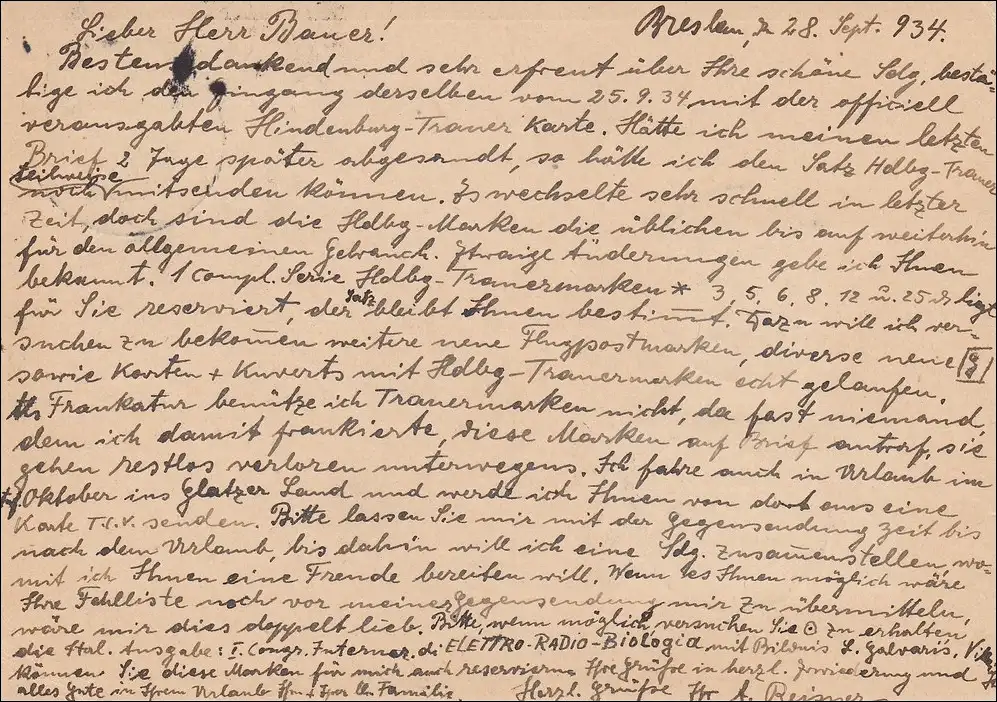 Lieber Herr Bauer! Breslau, d. 28. Sept. 934.
Bestens dankend und sehr erfreut über Ihre schöne Sdg, bestä-
tige ich den Eingang derselben vom 25.9.34 mit der officiell
verausgabten Hindenburg-Trauer Karte. Hätte ich meinen letzten
Brief 2 Tage später abgesandt, so hätte ich den Satz Hdbg-Trauer
teilweise
noch mitsenden können. Es wechselte sehr schnell in letzter
Zeit, doch sind die Hdbg-Marken die üblichen bis auf weiterhin
für den allgemeinen Gebrauch. Etwaige Änderungen gebe ich Ihnen
bekannt. 1 compl. Serie Hdbg-Trauermarken * 3, 5, 6, 8, 12 u. 25 d liegt
für Sie reserviert, der Satz bleibt Ihnen bestimmt. Dazu will ich ver-
suchen zu bekommen weitere neue Flugpostmarken, diverse neue
sowie Karten + Kuverts mit Hdbg-Trauermarken echt gelaufen.
Als Frankatur benütze ich Trauermarken nicht, da fast niemand,
dem ich damit frankierte, diese Marken auf Brief antraf, sie
gehen restlos verloren unterwegens. Ich fahre auch in Urlaub im
Oktober ins Glatzer Land und werde ich Ihnen von dort aus eine
Karte T.C.V. senden. Bitte lassen Sie mir mit der Gegensendung Zeit bis
nach dem Urlaub, bis dahin will ich eine Sdg. zusammenstellen, wo-
mit ich Ihnen eine Freude bereiten will. Wenn es Ihnen möglich wäre
Ihre Fehlliste noch vor meiner Gegensendung mir zu übermitteln,
wäre mir dies doppelt lieb. Bitte wenn möglich versuchen Sie ⊙ zu erhalten
die Ital. Ausgabe: I. Congr. Internaz. di ELETTRO-RADIO-Biologia mit Bildnis L. Galvanis.
können Sie diese Marken für mich auch reservieren. Ihre Grüße in herzl. Erwiederung und
alles Gute in Ihrem Urlaube Ihn + Ihrer lb. Familie. Herzl. Grüße Ihr A. Reisner